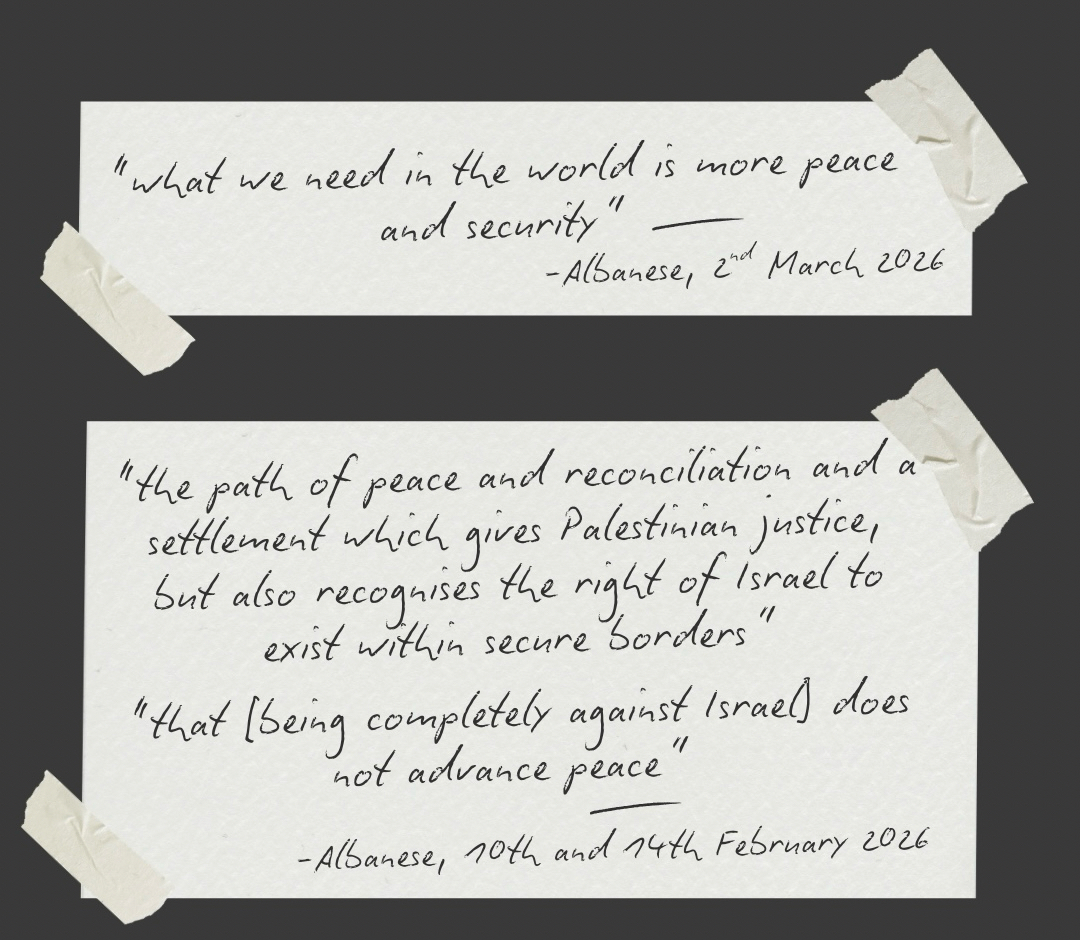 "what we need in the world is more peace
and security"
-Albanese, 2nd March 2026
"the path of peace and reconciliation and a
settlement which gives Palestinian justice,
but also recognises the right of Israel to
exist within secure borders"
"that [being completely against Israel] does
not advance peace"
-Albanese, 10th and 14th February 2026